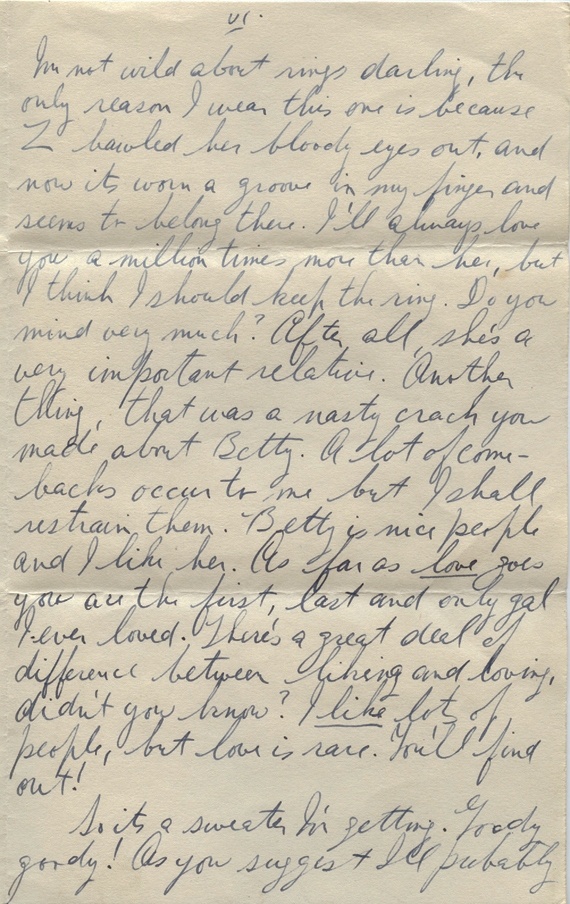 VI.
I'm not wild about rings darling, the
only reason I wear this one is because
Z bawled her bloody eyes out, and
now its worn a groove in my finger and
seems to belong there. I'll always love
you a million times more than her, but
I think I should keep the ring. Do you
mind very much? After all, she's a
very important relative. Another
thing, that was a nasty crack you
made about Betty. A lot of come-
backs occur to me but I shall
restrain them. Betty is nice people
and I like her. As far as love goes
you are the first, last and only gal
I ever loved. There's a great deal of
difference between liking and loving,
didn't you know? I like lots of
people, but love is rare. You'll find
out!
So its a sweater I'm getting. Goody
goody! As you suggest I'll probably